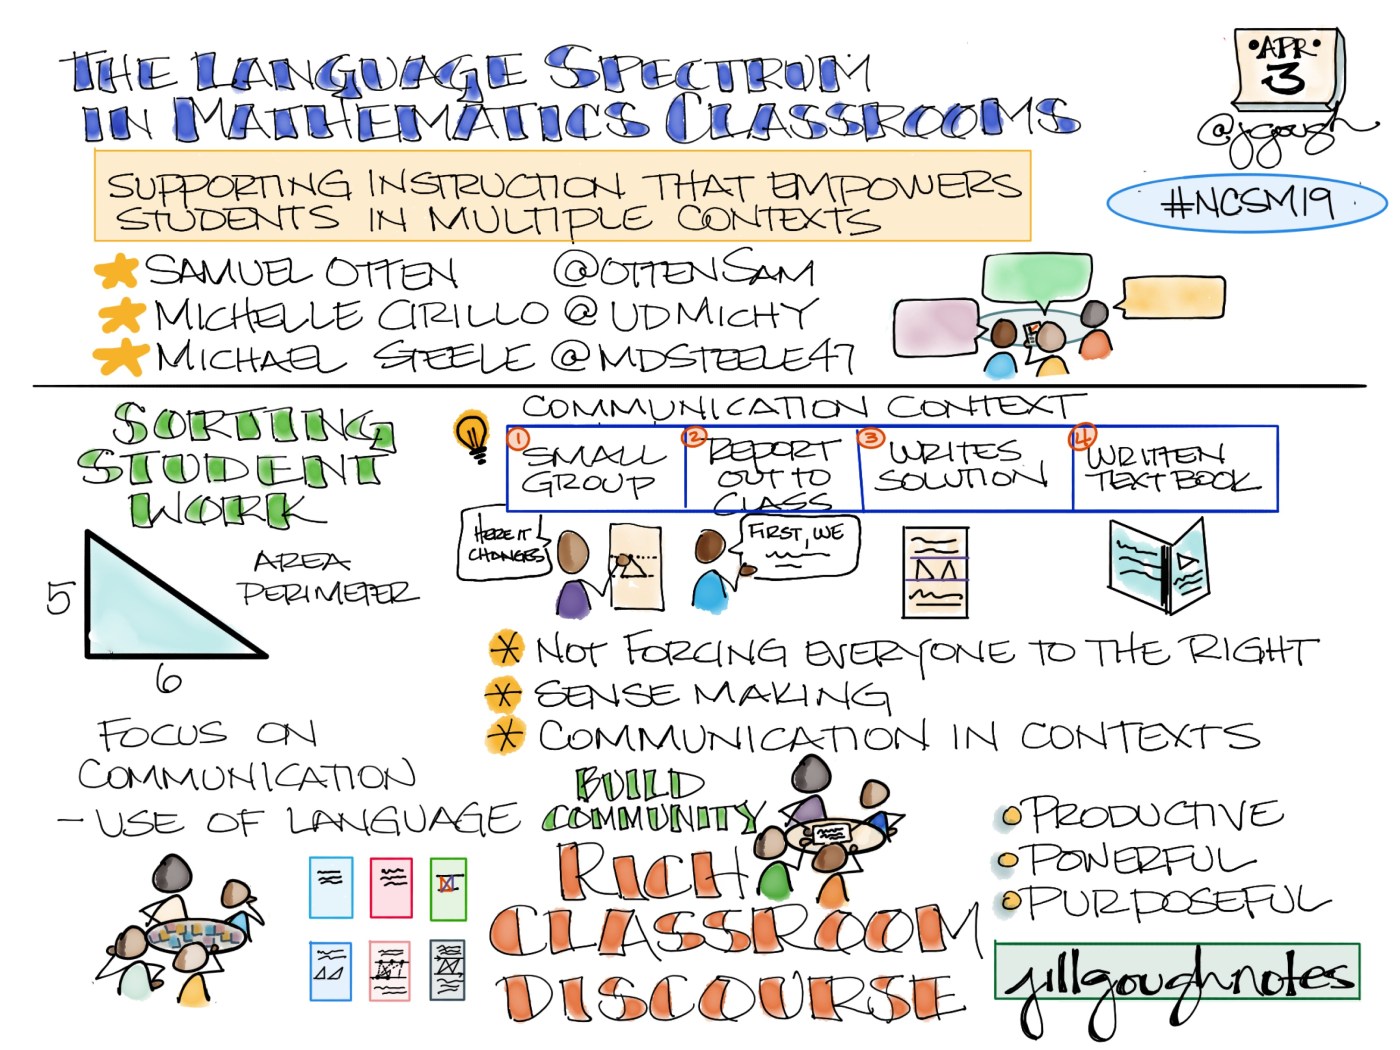 THE LANGUAGE SPECTRUM
IN MATHEMATICS CLASSROOMS
•APR•
3
@jgough
#NCSM19
SUPPORTING INSTRUCTION THAT EMPOWERS
STUDENTS IN MULTIPLE CONTEXTS
SAMUEL OTTEN @OTTENSAM
MICHELLE CIRILLO @UDMICHY
MICHAEL STEELE @MDSTEELE47
SORTING
STUDENT
WORK
AREA
PERIMETER
5
6
FOCUS ON
COMMUNICATION
- USE OF LANGUAGE
COMMUNICATION CONTEXT
1 SMALL
GROUP
2 REPORT
OUT TO
CLASS
3 WRITES
SOLUTION
4 WRITTEN
TEXT BOOK
HERE IT
CHANGES
FIRST, WE
* NOT FORCING EVERYONE TO THE RIGHT
* SENSE MAKING
* COMMUNICATION IN CONTEXTS
BUILD
COMMUNITY
RICH
CLASSROOM
DISCOURSE
PRODUCTIVE
POWERFUL
PURPOSEFUL
jillgoughnotes